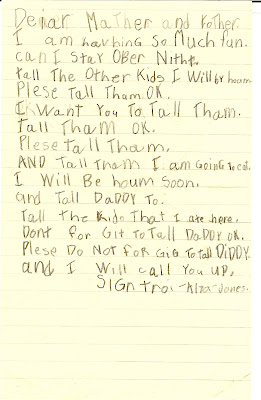 Deinar Mather and Fother
I am havhing So Much fun.
can I Stay OBer Nitht.
tall The Other Kids I Will by houm
Plese Tall Tham OK.
I Want You To Tall Tham.
Tall Tham OK.
Plese tall Tham.
AND Tall Tham I am Going to
I Will Be houm Soon.
and Tall DaDDY To.
Tall the Kids That I are here.
Dont for Git To Tall DaDDY OK.
Plese Do Not for Gig To tall DIDDY.
and I Will call You UP.
SIGn from - Jones.